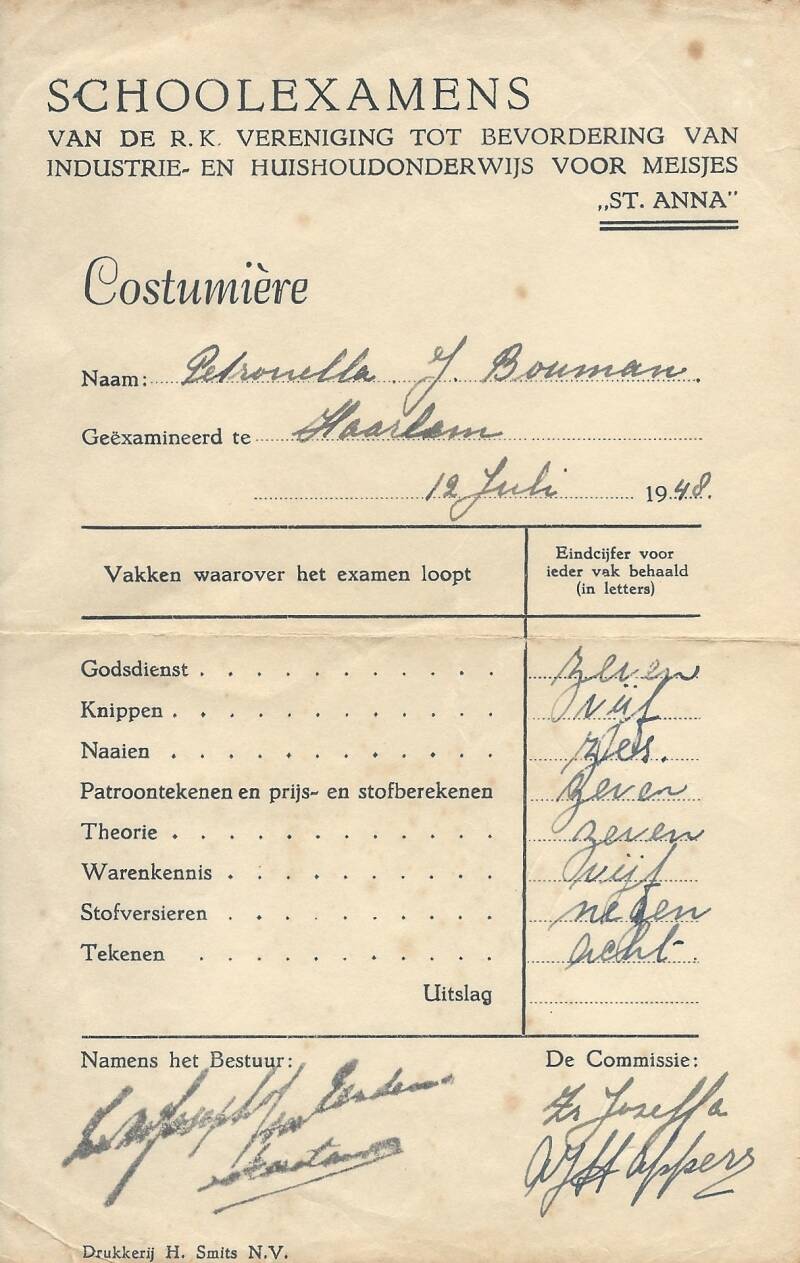 SCHOOLEXAMENS
VAN DE R.K. VERENIGING TOT BEVORDERING VAN
INDUSTRIE- EN HUISHOUDONDERWIJS VOOR MEISJES
„ST. ANNA”
Costumière
Naam: Petronella J. Bouman.
Geëxamineerd te Haarlem
12 Juli 1948.
Vakken waarover het examen loopt
Eindcijfer voor
ieder vak behaald
(in letters)
Godsdienst . . . . . . . . . . . zeven
Knippen . . . . . . . . . . . . vijf
Naaien . . . . . . . . . . . . zes.
Patroontekenen en prijs- en stofberekenen zeven
Theorie . . . . . . . . . . . . zeven
Warenkennis . . . . . . . . . . vijf
Stofversieren . . . . . . . . . . negen
Tekenen . . . . . . . . . . . acht.
Uitslag
Namens het Bestuur:
De Commissie:
Zr Joseffa
Drukkerij H. Smits N.V.